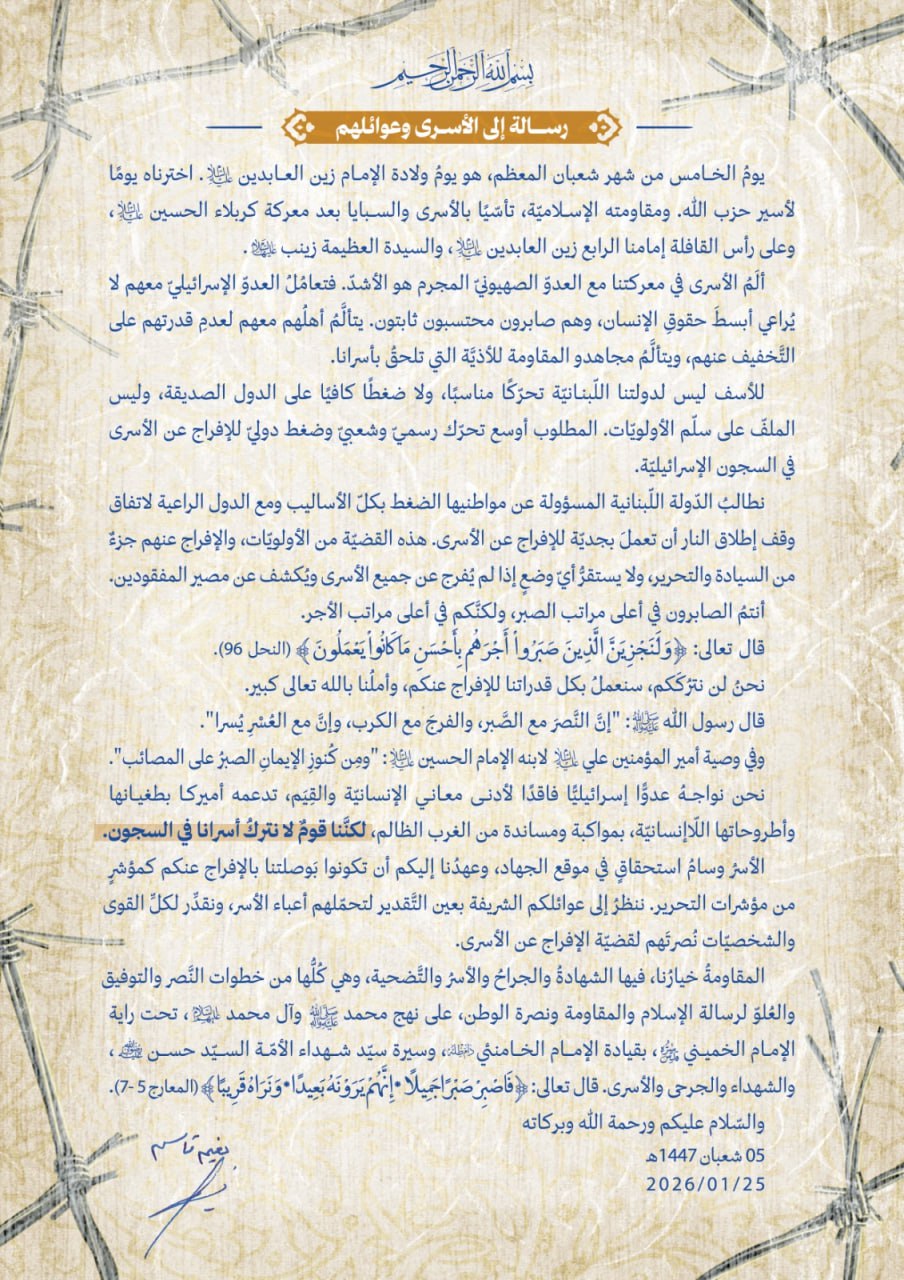 بسم الله الرحمن الرحيم
رسالة إلى الأسرى وعوائلهم
يومُ الخامس من شهر شعبان المعظم، هو يومُ ولادة الإمام زين العابدين عليه السلام. اخترناه يومًا
لأسير حزب الله. ومقاومته الإسلاميّة، تأسّيًا بالأسرى والسبايا بعد معركة كربلاء الحسين عليه السلام،
وعلى رأس القافلة إمامنا الرابع زين العابدين عليه السلام، والسيدة العظيمة زينب عليها السلام.
ألَمُ الأسرى في معركتنا مع العدوّ الصهيونيّ المجرم هو الأشدّ. فتعامُلُ العدوّ الإسرائيليّ معهم لا
يُراعي أبسطَ حقوقِ الإنسان، وهم صابرون محتسبون ثابتون. يتألَّمُ أهلُهم معهم لعدمِ قدرتهم على
التَّخفيف عنهم، ويتألَّمُ مجاهدو المقاومة للأذيَّة التي تلحقُ بأسرانا.
للأسف ليس لدولتنا اللّبنانيّة تحرّكًا مناسبًا، ولا ضغطًا كافيًا على الدول الصديقة، وليس
الملفّ على سلّم الأولويّات. المطلوب أوسع تحرّك رسميّ وشعبيّ وضغط دوليّ للإفراج عن الأسرى
في السجون الإسرائيليّة.
نطالبُ الدّولة اللّبنانية المسؤولة عن مواطنيها الضغط بكلّ الأساليب ومع الدول الراعية لاتفاق
وقف إطلاق النار أن تعملَ بجديّة للإفراج عن الأسرى. هذه القضيّة من الأولويّات، والإفراج عنهم جزءٌ
من السيادة والتحرير، ولا يستقرُّ أيّ وضعٍ إذا لم يُفرج عن جميع الأسرى ويُكشف عن مصير المفقودين.
أنتمُ الصابرون في أعلى مراتب الصبر، ولكنَّكم في أعلى مراتب الأجر.
قال تعالى: ﴿وَلَنَجْزِيَنَّ الَّذِينَ صَبَرُواْ أَجْرَهُم بِأَحْسَنِ مَا كَانُواْ يَعْمَلُونَ﴾ (النحل 96).
نحنُ لن نترُكَكم، سنعملُ بكل قدراتنا للإفراج عنكم، وأملُنا بالله تعالى كبير.
قال رسول الله ﷺ: "إنَّ النَّصرَ مع الصَّبر، والفرجَ مع الكرب، وإنَّ مع العُسْرِ يُسرا".
وفي وصية أمير المؤمنين علي عليه السلام لابنه الإمام الحسين عليه السلام: "ومِن كُنوزِ الإيمانِ الصبرُ على المصائب".
نحن نواجهُ عدوًّا إسرائيليًّا فاقدًا لأدنى معاني الإنسانيّة والقِيَم، تدعمه أميركا بطغيانها
وأطروحاتها اللّاإنسانيّة، بمواكبة ومساندة من الغرب الظالم، لكنَّنا قومٌ لا نتركُ أسرانا في السجون.
الأسرُ وسامُ استحقاقٍ في موقع الجهاد، وعهدُنا إليكم أن تكونوا بَوصلتنا بالإفراج عنكم كمؤشرٍ
من مؤشرات التحرير. ننظرُ إلى عوائلكم الشريفة بعين التَّقدير لتحمّلهم أعباء الأسر، ونقدِّر لكلِّ القوى
والشخصيّات نُصرتَهم لقضيّة الإفراج عن الأسرى.
المقاومةُ خيارُنا، فيها الشهادةُ والجراحُ والأسرُ والتَّضحية، وهي كُلُّها من خطوات النَّصر والتوفيق
والعُلوّ لرسالة الإسلام والمقاومة ونصرة الوطن، على نهج محمد ﷺ وآل محمد عليهم السلام، تحت راية
الإمام الخميني قدس سره، بقيادة الإمام الخامنئي دام ظله، وسيرة سيّد شهداء الأمّة السيّد حسن،
والشهداء والجرحى والأسرى. قال تعالى: ﴿فَاصْبِرْ صَبْرًا جَمِيلًا • إِنَّهُمْ يَرَوْنَهُ بَعِيدًا • وَنَرَاهُ قَرِيبًا﴾ (المعارج 5-7).
والسّلام عليكم ورحمة الله وبركاته
05 شعبان 1447هـ
2026/01/25
نعيم قاسم